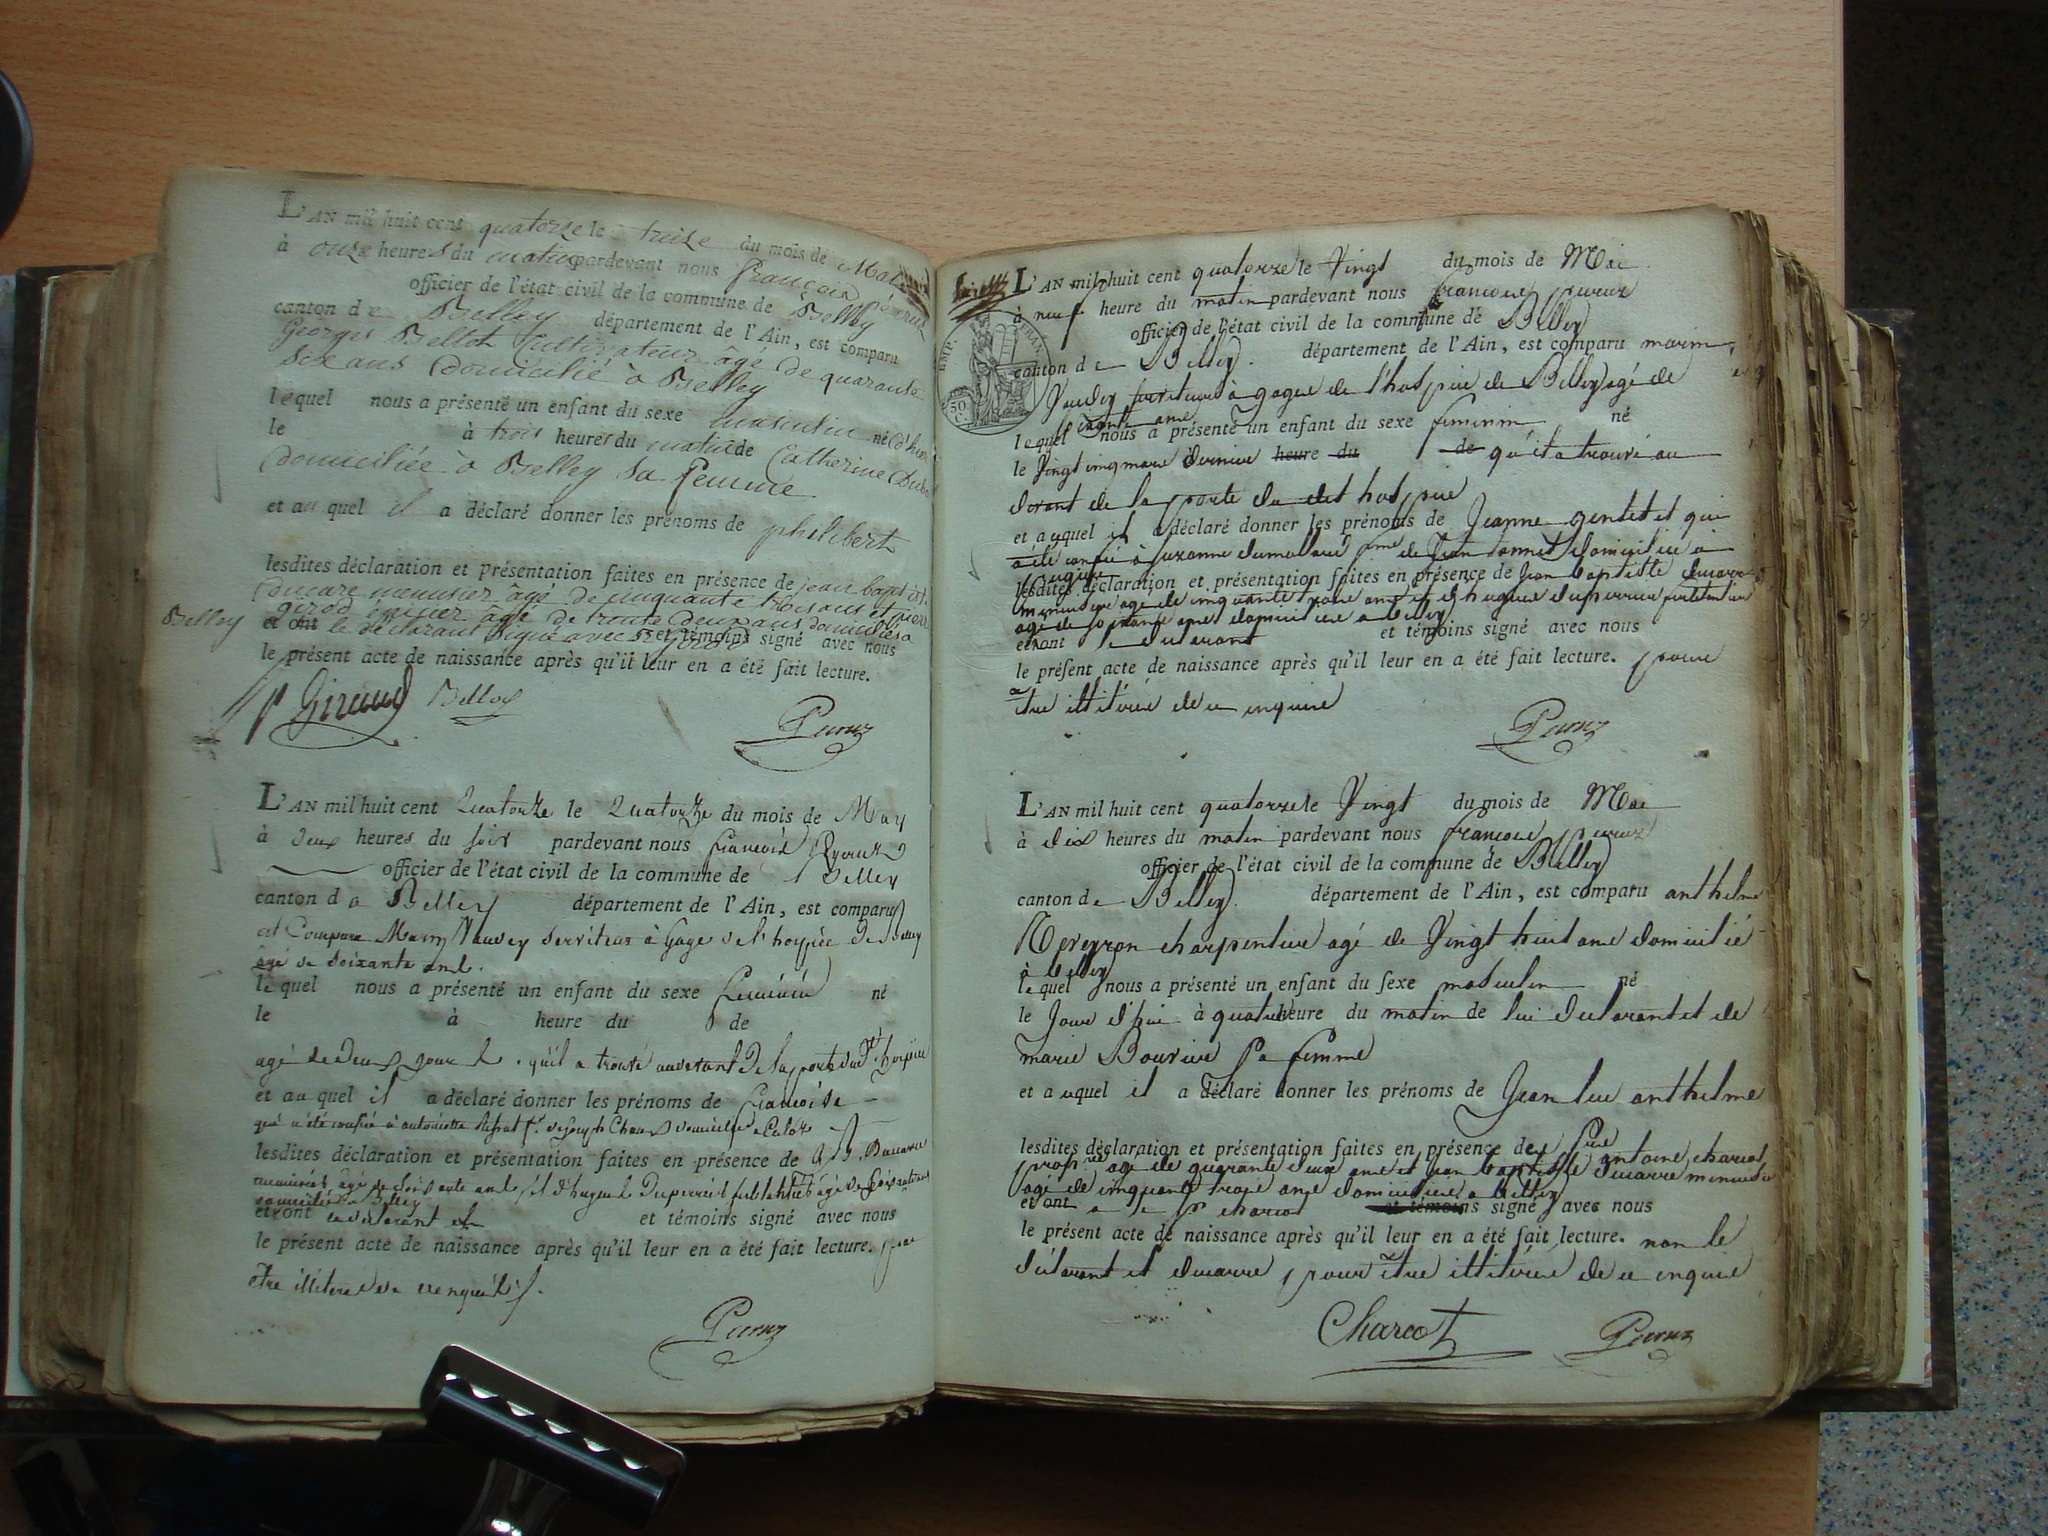 L'AN mil huit cent quatorze le treize du mois de Mai
à onze heures du matin pardevant nous François
officier de l'état civil de la commune de Belley
canton de Belley département de l'Ain, est comparu
Georges Bellot cultivateur âgé de quarante
six ans domicilié à Belley
lequel nous a présenté un enfant du sexe masculin né d'hier
le à trois heures du matin de Catherine
domiciliée à Belley sa femme
et au quel il a déclaré donner les prénoms de philibert
lesdites déclaration et présentation faites en présence de jean baptiste
ducare menuisier âgé de cinquante trois ans et
girod âgé de trente deux ans domiciliés à
Belley et ont le déclarant et témoins signé avec nous
le présent acte de naissance après qu'il leur en a été fait lecture.
L'AN mil huit cent Quatorze le Quatorze du mois de May
à deux heures du soir pardevant nous François
officier de l'état civil de la commune de Belley
canton de Belley département de l'Ain, est comparu
est Comparu Marin Vauvey serviteur à Gage de l'hospice de Belley
âgé de soixante ans.
lequel nous a présenté un enfant du sexe féminin né
le à heure du de
agé de deux jours. qu'il a trouvé audevant de la porte dudt hospice
et au quel il a déclaré donner les prénoms de Françoise
qui a été confiée à antoinette de joseph domicilié à Culoz
lesdites déclaration et présentation faites en présence de J. B. Ducarre
menuisier âgé de soixante ans et d'hugues Duperrier âgé de soixante ans
domiciliés à Belley
et ont le déclarant et témoins signé avec nous
le présent acte de naissance après qu'il leur en a été fait lecture. pour
être illiteré de ce enquis.
L'AN mil huit cent quatorze le Vingt du mois de Mai
à neuf heure du matin pardevant nous françois
officier de l'état civil de la commune de Belley
canton de Belley. département de l'Ain, est comparu marin
serviteur à gages de l'hospice de Belley agé de
soixante ans
lequel nous a présenté un enfant du sexe feminin né
le Vingt cinq mars dernier heure du de qu'il a trouvé au
devant de la porte du dit hospice
et auquel il a déclaré donner les prénoms de Jeanne et qui
a été confié à suzanne feme de Jean domicilié à
lesdites déclaration et présentation faites en présence de Jean baptiste ducarre
menuisier agé de cinquante trois ans et d'hugues duperrier
agé de soixante ans domiciliés à belley
et ont le declarant et témoins signé avec nous
le présent acte de naissance après qu'il leur en a été fait lecture. pour
être illitéré de ce enquis
L'AN mil huit cent quatorze le Vingt du mois de Mai
à dix heures du matin pardevant nous françois
officier de l'état civil de la commune de Belley
canton de Belley. département de l'Ain, est comparu anthelme
Neyron charpentier agé de Vingt huit ans domicilié
à belley
lequel nous a présenté un enfant du sexe masculin né
le Jour d'hui à quatre heure du matin de lui déclarant et de
marie Bouvier sa femme
et auquel il a déclaré donner les prénoms de Jean luc anthelme
lesdites déclaration et présentation faites en présence de Sieur antoine charcot
agé de quarante deux ans et jean baptiste ducarre menuisier
agé de cinquante trois ans domiciliés à belley
et ont a le Sr charcot et témoins signé avec nous
le présent acte de naissance après qu'il leur en a été fait lecture. non le
déclarant et ducarre pour être illitéré de ce enquis
Charcot